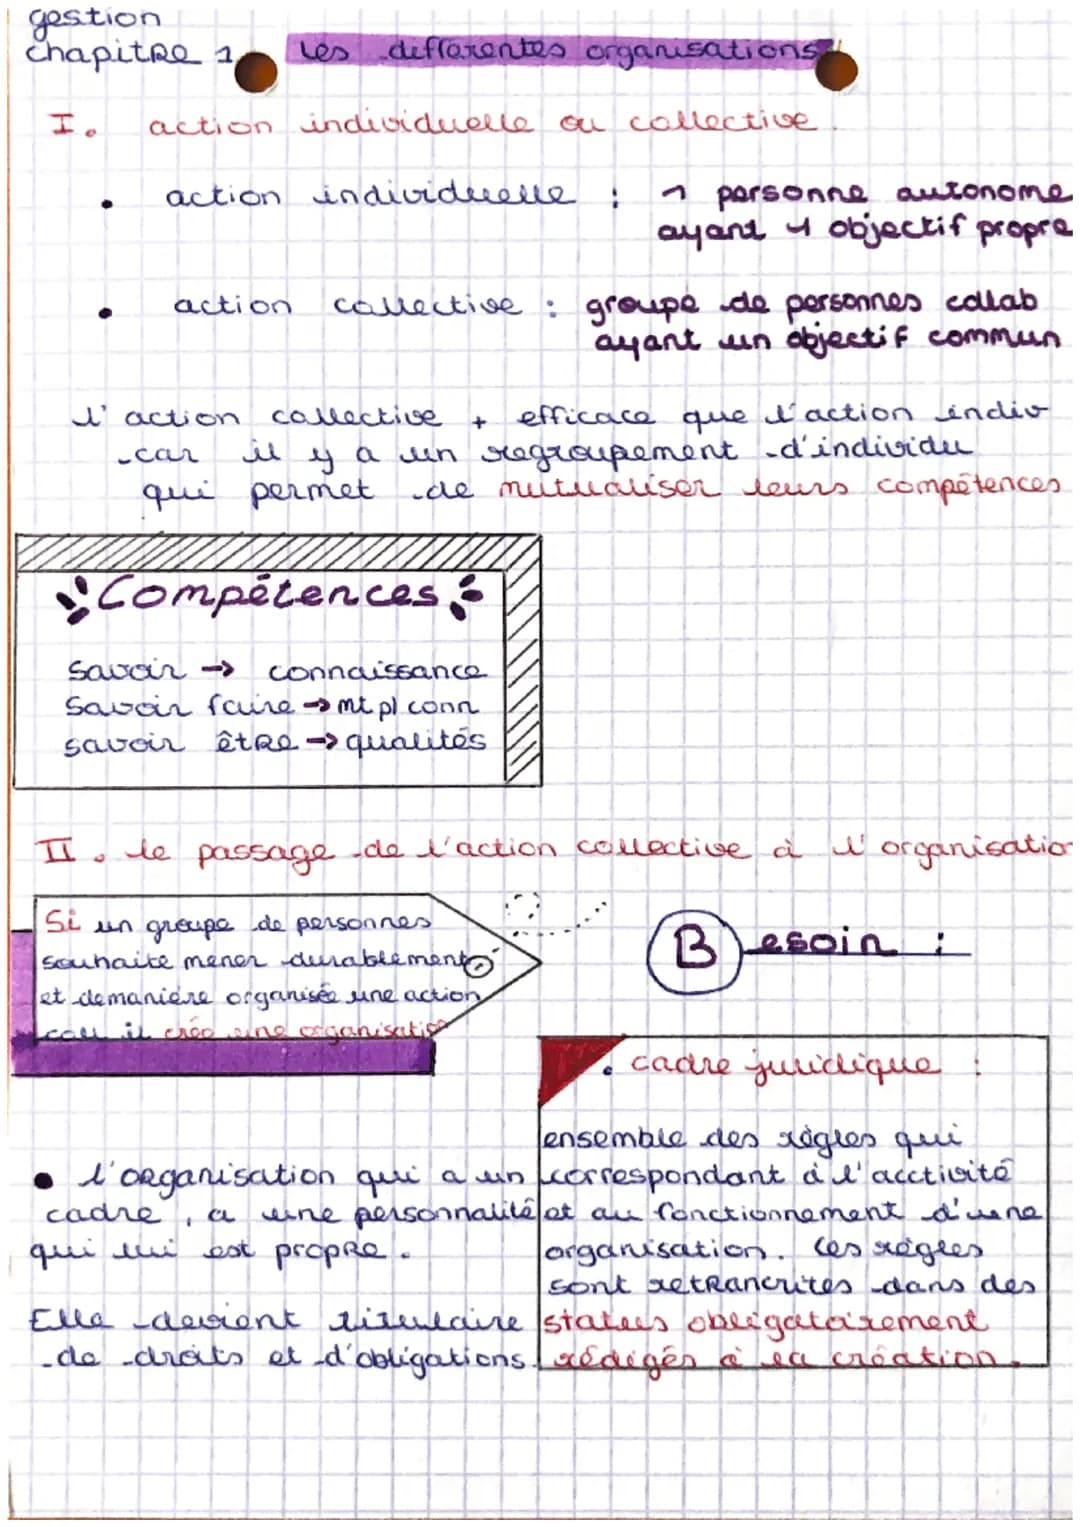 gestion
chapitRe 1 les differentes organisations
I. action individuelle ou collective.
• action individuelle : 1 personne autonome
ayant 1 objectif propre
• action collective : groupe de personnes collab
ayant un objectif commun
l'action collective + efficace que l'action indiv
car il y a un regroupement d'individu
qui permet de mutualiser leurs compétences
Compétences
savoir → connaissance
Savoir faire → mt pl conn
savoir êtRe → qualités
II. le passage de l'action collective à l'organisation
Si un groupe de personnes
souhaite mener durablement
et de manière organisée une action
coll il crée une organisation
Besoin :
• cadre juridique :
ensemble des règles qui
correspondant à l'acctivité
et au fonctionnement d'une
organisation. Ces règles
sont retRancrites dans des
status obligatoirement
rédigés à la création.
• l'oRganisation qui a un
cadre, a une personnalité
qui lui est propRe.
Elle devient titulaire
de droits et d'obligations.